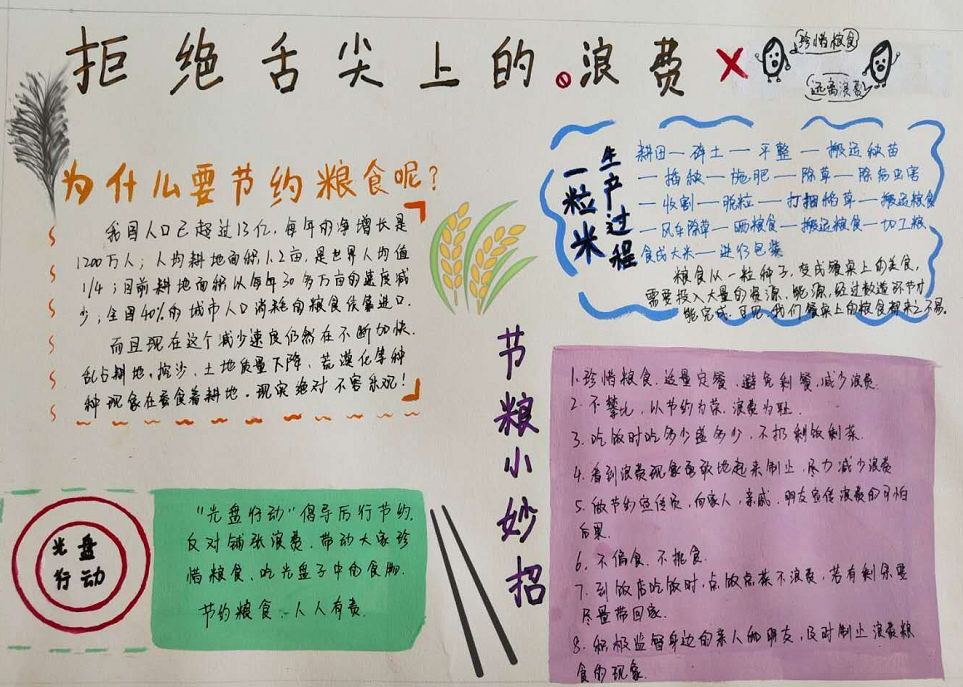 拒绝舌尖上的浪费
珍惜粮食
远离浪费
为什么要节约粮食呢?
我国人口已超过13亿,每年的净增长是
1200万人;人均耕地面积1.2亩,是世界人均值
1/4;目前耕地面积以每年30多万亩的速度减
少;全国40%的城市人口消耗的粮食依靠进口.
而且现在这个减少速度仍然在不断加快.
乱占耕地,挖沙,土地质量下降,荒漠化等种
种现象在蚕食着耕地.现实绝对不容乐观!
一粒米
生产过程
耕田一碎土一平整一搬运秧苗
一插秧一施肥一除草一除病虫害
一收割一脱粒一打捆稻草一搬运粮食
一风车除草一晒粮食一搬运粮食一加工粮
食成大米一进行包装
粮食从一粒种子,变成餐桌上的美食,
需要投入大量的资源、能源,经过数道环节才
能完成.可见,我们餐桌上的粮食都来之不易.
节粮小妙招
1.珍惜粮食.适量定餐.避免剩餐,减少浪费.
2.不攀比,以节约为荣.浪费为耻.
3.吃饭时吃多少盛多少,不扔剩饭剩菜.
4.看到浪费现象勇敢地起来制止,尽力减少浪费
5.做节约宣传员,向家人,亲戚,朋友宣传浪费的可怕
后果.
6.不偏食.不挑食.
7.到饭店吃饭时,点饭点菜不浪费,若有剩余要
尽量带回家.
8.积极监督身边的亲人和朋友,及时制止浪费粮
食的现象.
光盘
行动
“光盘行动”倡导厉行节约.
反对铺张浪费.带动大家珍
惜粮食、吃光盘子中的食物.
节约粮食、人人有责.